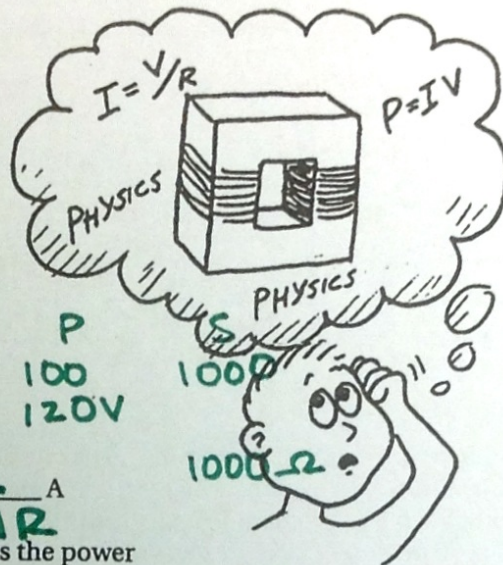 I = V/R
P = IV
PHYSICS
PHYSICS
P S
100 1000
120V
1000 Ω
A
R
s the power